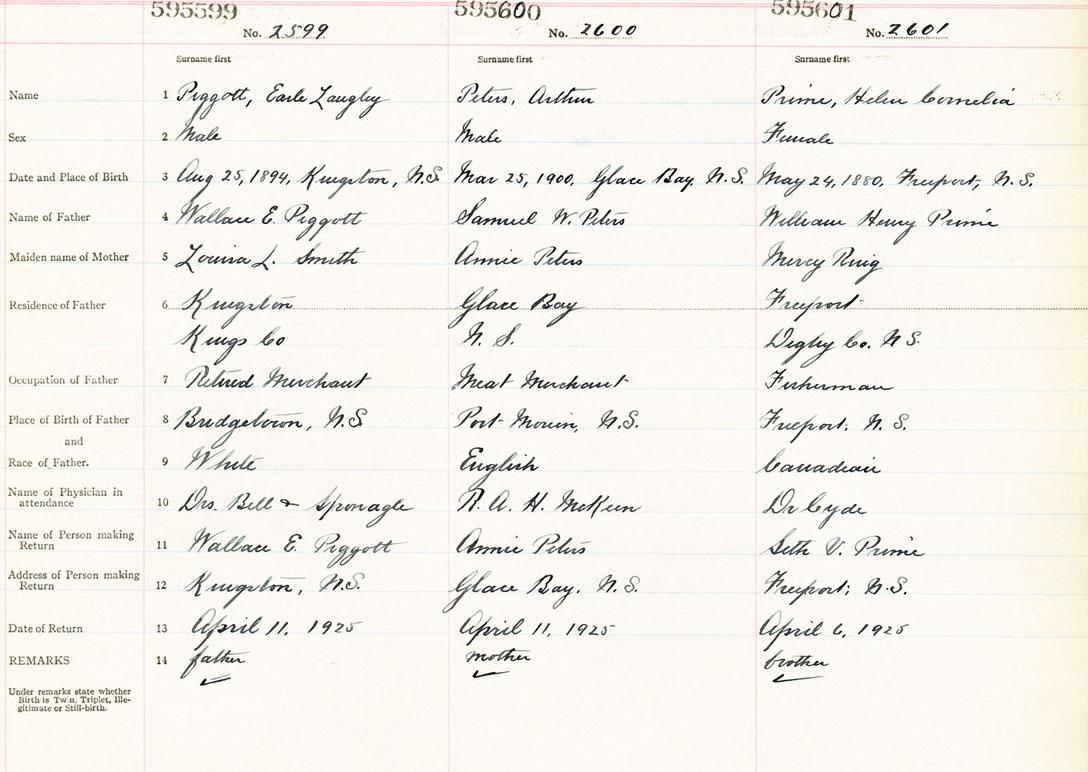 595599 595600 595601
No. 2599 No. 2600 No. 2601
Surname first Surname first Surname first
Name 1 Piggott, Earle Langley Peters, Arthur Prime, Helen Cornelia
Sex 2 Male Male Female
Date and Place of Birth 3 Aug 25, 1894, Kingston, N.S. Mar 25, 1900, Glace Bay, N.S. May 24, 1880, Freeport, N.S.
Name of Father 4 Wallace E. Piggott Samuel W. Peters William Henry Prime
Maiden name of Mother 5 Louisa L. Smith Annie Peters Mercy Ring
Residence of Father 6 Kingston Glace Bay Freeport
Kings Co N. S. Digby Co. N S.
Occupation of Father 7 Retired Merchant Meat Merchant Fisherman
Place of Birth of Father 8 Bridgetown, N.S Port Morien, N.S. Freeport, N. S.
and
Race of Father. 9 White English Canadian
Name of Physician in
attendance 10 Drs. Bell & Sponagle R. A. H. McKeen Dr
Name of Person making
Return 11 Wallace E. Piggott Annie Peters Seth V. Prime
Address of Person making
Return 12 Kingston, N.S. Glace Bay, N.S. Freeport, N.S.
Date of Return 13 April 11, 1925 April 11, 1925 April 6, 1925
REMARKS 14 father mother brother
Under remarks state whether
Birth is Twin, Triplet, Ille-
gitimate or Still-birth.